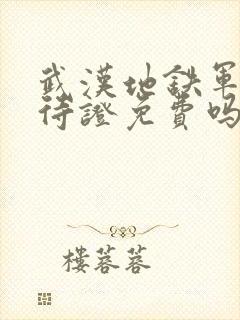 武漢地鉄軍
待證免費嗎
樓蓉蓉